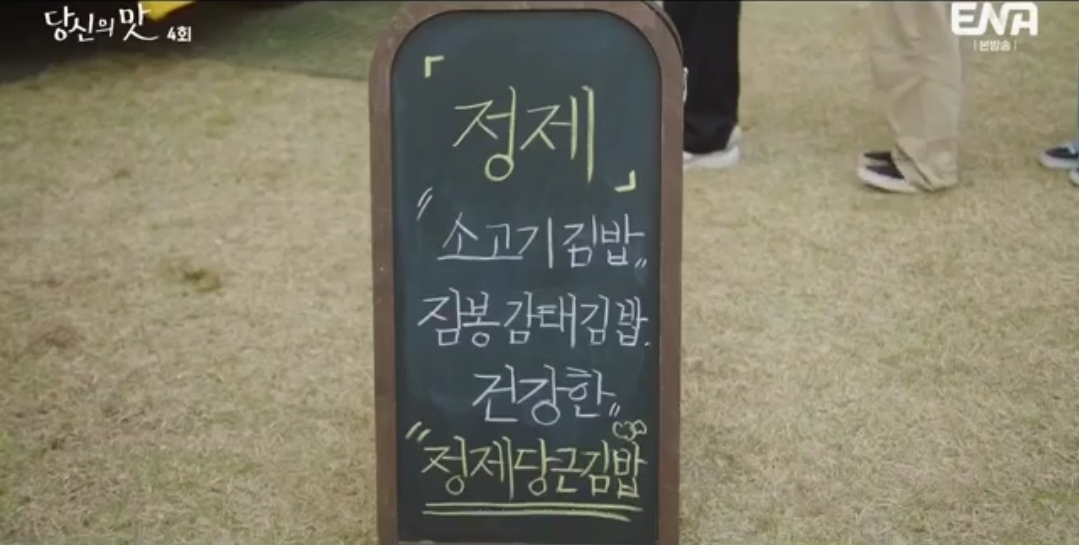 당신의 맛 4회
ENA
본방송
「정제」
"소고기김밥"
짐봉감태김밥.
건강한"
"정제당근김밥